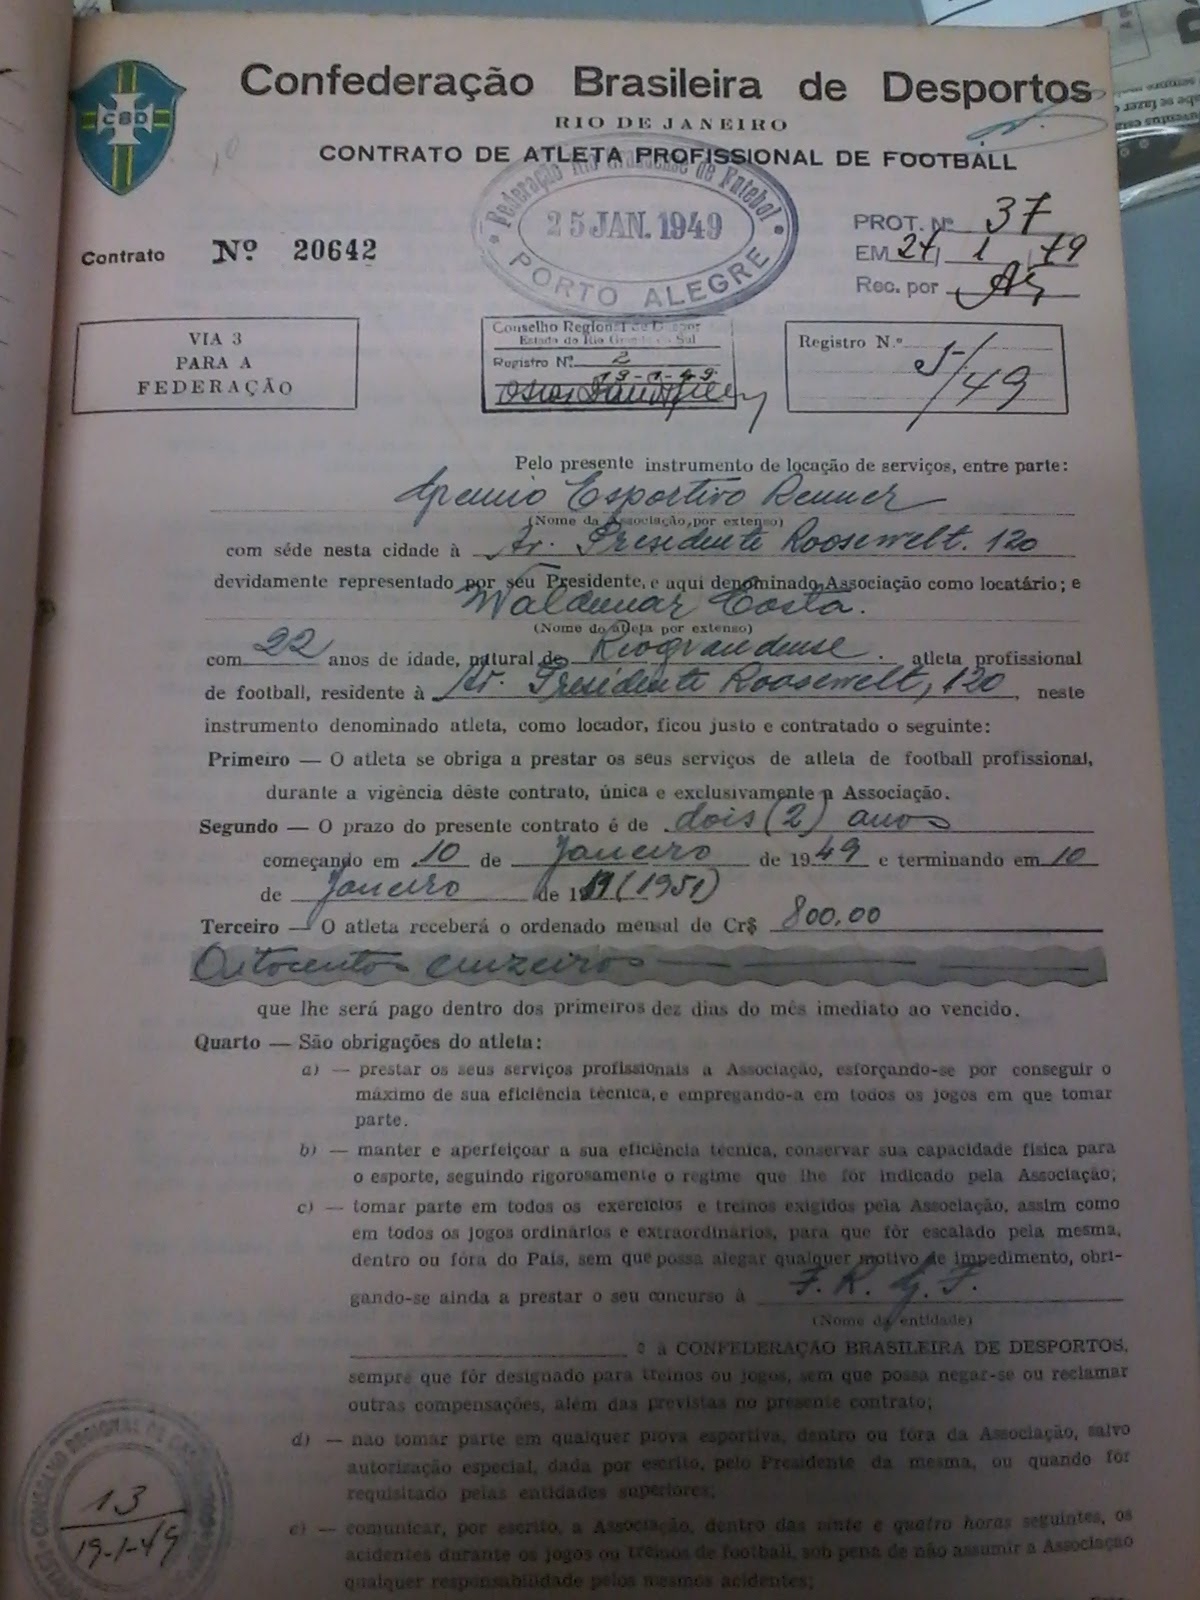 Confederação Brasileira de Desportos
CBD
RIO DE JANEIRO
CONTRATO DE ATLETA PROFISSIONAL DE FOOTBALL
Federação Rio Grandense de Futebol
25 JAN. 1949
PORTO ALEGRE
PROT. Nº 37
Contrato Nº 20642
EM 21 1 49
Rec. por
VIA 3
PARA A
FEDERAÇÃO
Conselho Regional de Despor
Estado do Rio Grande do Sul
Registro Nº 2
19-1-49
Registro N.º
/49
Pelo presente instrumento de locação de serviços, entre parte:
Gremio Esportivo Renner
(Nome da Associação, por extenso)
com séde nesta cidade à Av. Presidente Roosewelt. 120
devidamente representado por seu Presidente, e aqui denominado Associação como locatário; e
Waldemar Costa.
(Nome do atleta por extenso)
com 22 anos de idade, natural de Riograndense. atleta profissional
de football, residente à Av. Presidente Roosewelt, 120, neste
instrumento denominado atleta, como locador, ficou justo e contratado o seguinte:
Primeiro — O atleta se obriga a prestar os seus serviços de atleta de football profissional,
durante a vigência dêste contrato, única e exclusivamente a Associação.
Segundo — O prazo do presente contrato é de dois (2) anos
começando em 10 de Janeiro de 1949 e terminando em 10
de Janeiro de 1951 (1951)
Terceiro — O atleta receberá o ordenado mensal de Cr$ 800,00
Oitocentos cruzeiros
que lhe será pago dentro dos primeiros dez dias do mês imediato ao vencido.
Quarto — São obrigações do atleta:
a) — prestar os seus serviços profissionais a Associação, esforçando-se por conseguir o
máximo de sua eficiência técnica, e empregando-a em todos os jogos em que tomar
parte.
b) — manter e aperfeiçoar a sua eficiência técnica, conservar sua capacidade física para
o esporte, seguindo rigorosamente o regime que lhe fôr indicado pela Associação;
c) — tomar parte em todos os exercícios e treinos exigidos pela Associação, assim como
em todos os jogos ordinários e extraordinários, para que fôr escalado pela mesma,
dentro ou fóra do País, sem que possa alegar qualquer motivo de impedimento, obri-
gando-se ainda a prestar o seu concurso à F. R. G. F.
(Nome da entidade)
e à CONFEDERAÇÃO BRASILEIRA DE DESPORTOS,
sempre que fôr designado para treinos ou jogos, sem que possa negar-se ou reclamar
outras compensações, além das previstas no presente contrato;
d) — não tomar parte em qualquer prova esportiva, dentro ou fóra da Associação, salvo
autorização especial, dada por escrito, pelo Presidente da mesma, ou quando fôr
requisitado pelas entidades superiores;
e) — comunicar, por escrito, a Associação, dentro das vinte e quatro horas seguintes, os
acidentes durante os jogos ou treinos de football, sob pena de não assumir a Associação
qualquer responsabilidade pelos mesmos acidentes;
CONSELHO REGIONAL DE
13
19-1-49